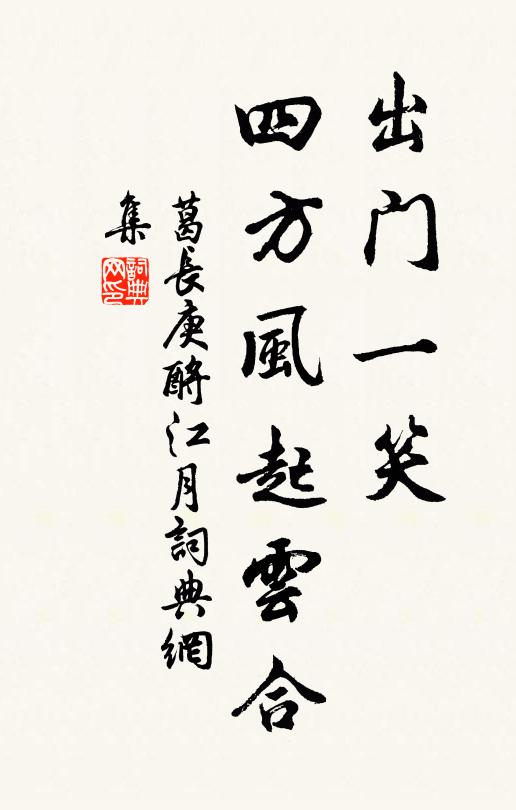 出门一笑
四方風起雲合
葛長庚酹江月詞典網
集
詞典网印